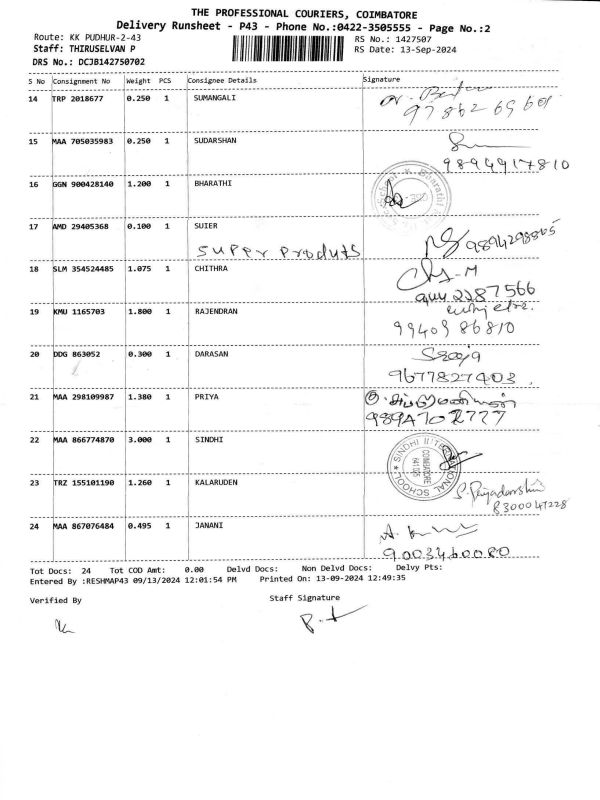 THE PROFESSIONAL COURIERS, COIMBATORE
Delivery Runsheet - P43 - Phone No.:0422-3505555 - Page No.:2
Route: KK PUDHUR-2-43 RS No.: 1427507
Staff: THIRUSELVAN P RS Date: 13-Sep-2024
DRS No.: DCJB142750702
S No Consignment No Weight PCS Consignee Details Signature
14 TRP 2018677 0.250 1 SUMANGALI
97862 69601
15 MAA 705035983 0.250 1 SUDARSHAN
9894917810
16 GGN 900428140 1.200 1 BHARATHI
17 AMD 29405368 0.100 1 SUIER
super produts 9894298865
18 SLM 354524485 1.075 1 CHITHRA
2287566
19 KMU 1165703 1.800 1 RAJENDRAN
99409 86810
20 DDG 863052 0.300 1 DARASAN Saroja
9677827403
21 MAA 298109987 1.380 1 PRIYA
22 MAA 866774870 3.000 1 SINDHI
SINDHI INTERNATIONAL SCHOOL
COIMBATORE
23 TRZ 155101190 1.260 1 KALARUDEN S. Priyadarshini
8300047228
24 MAA 867076484 0.495 1 JANANI
9003460080
Tot Docs: 24 Tot COD Amt: 0.00 Delvd Docs: Non Delvd Docs: Delvy Pts:
Entered By :RESHMAP43 09/13/2024 12:01:54 PM Printed On: 13-09-2024 12:49:35
Verified By Staff Signature